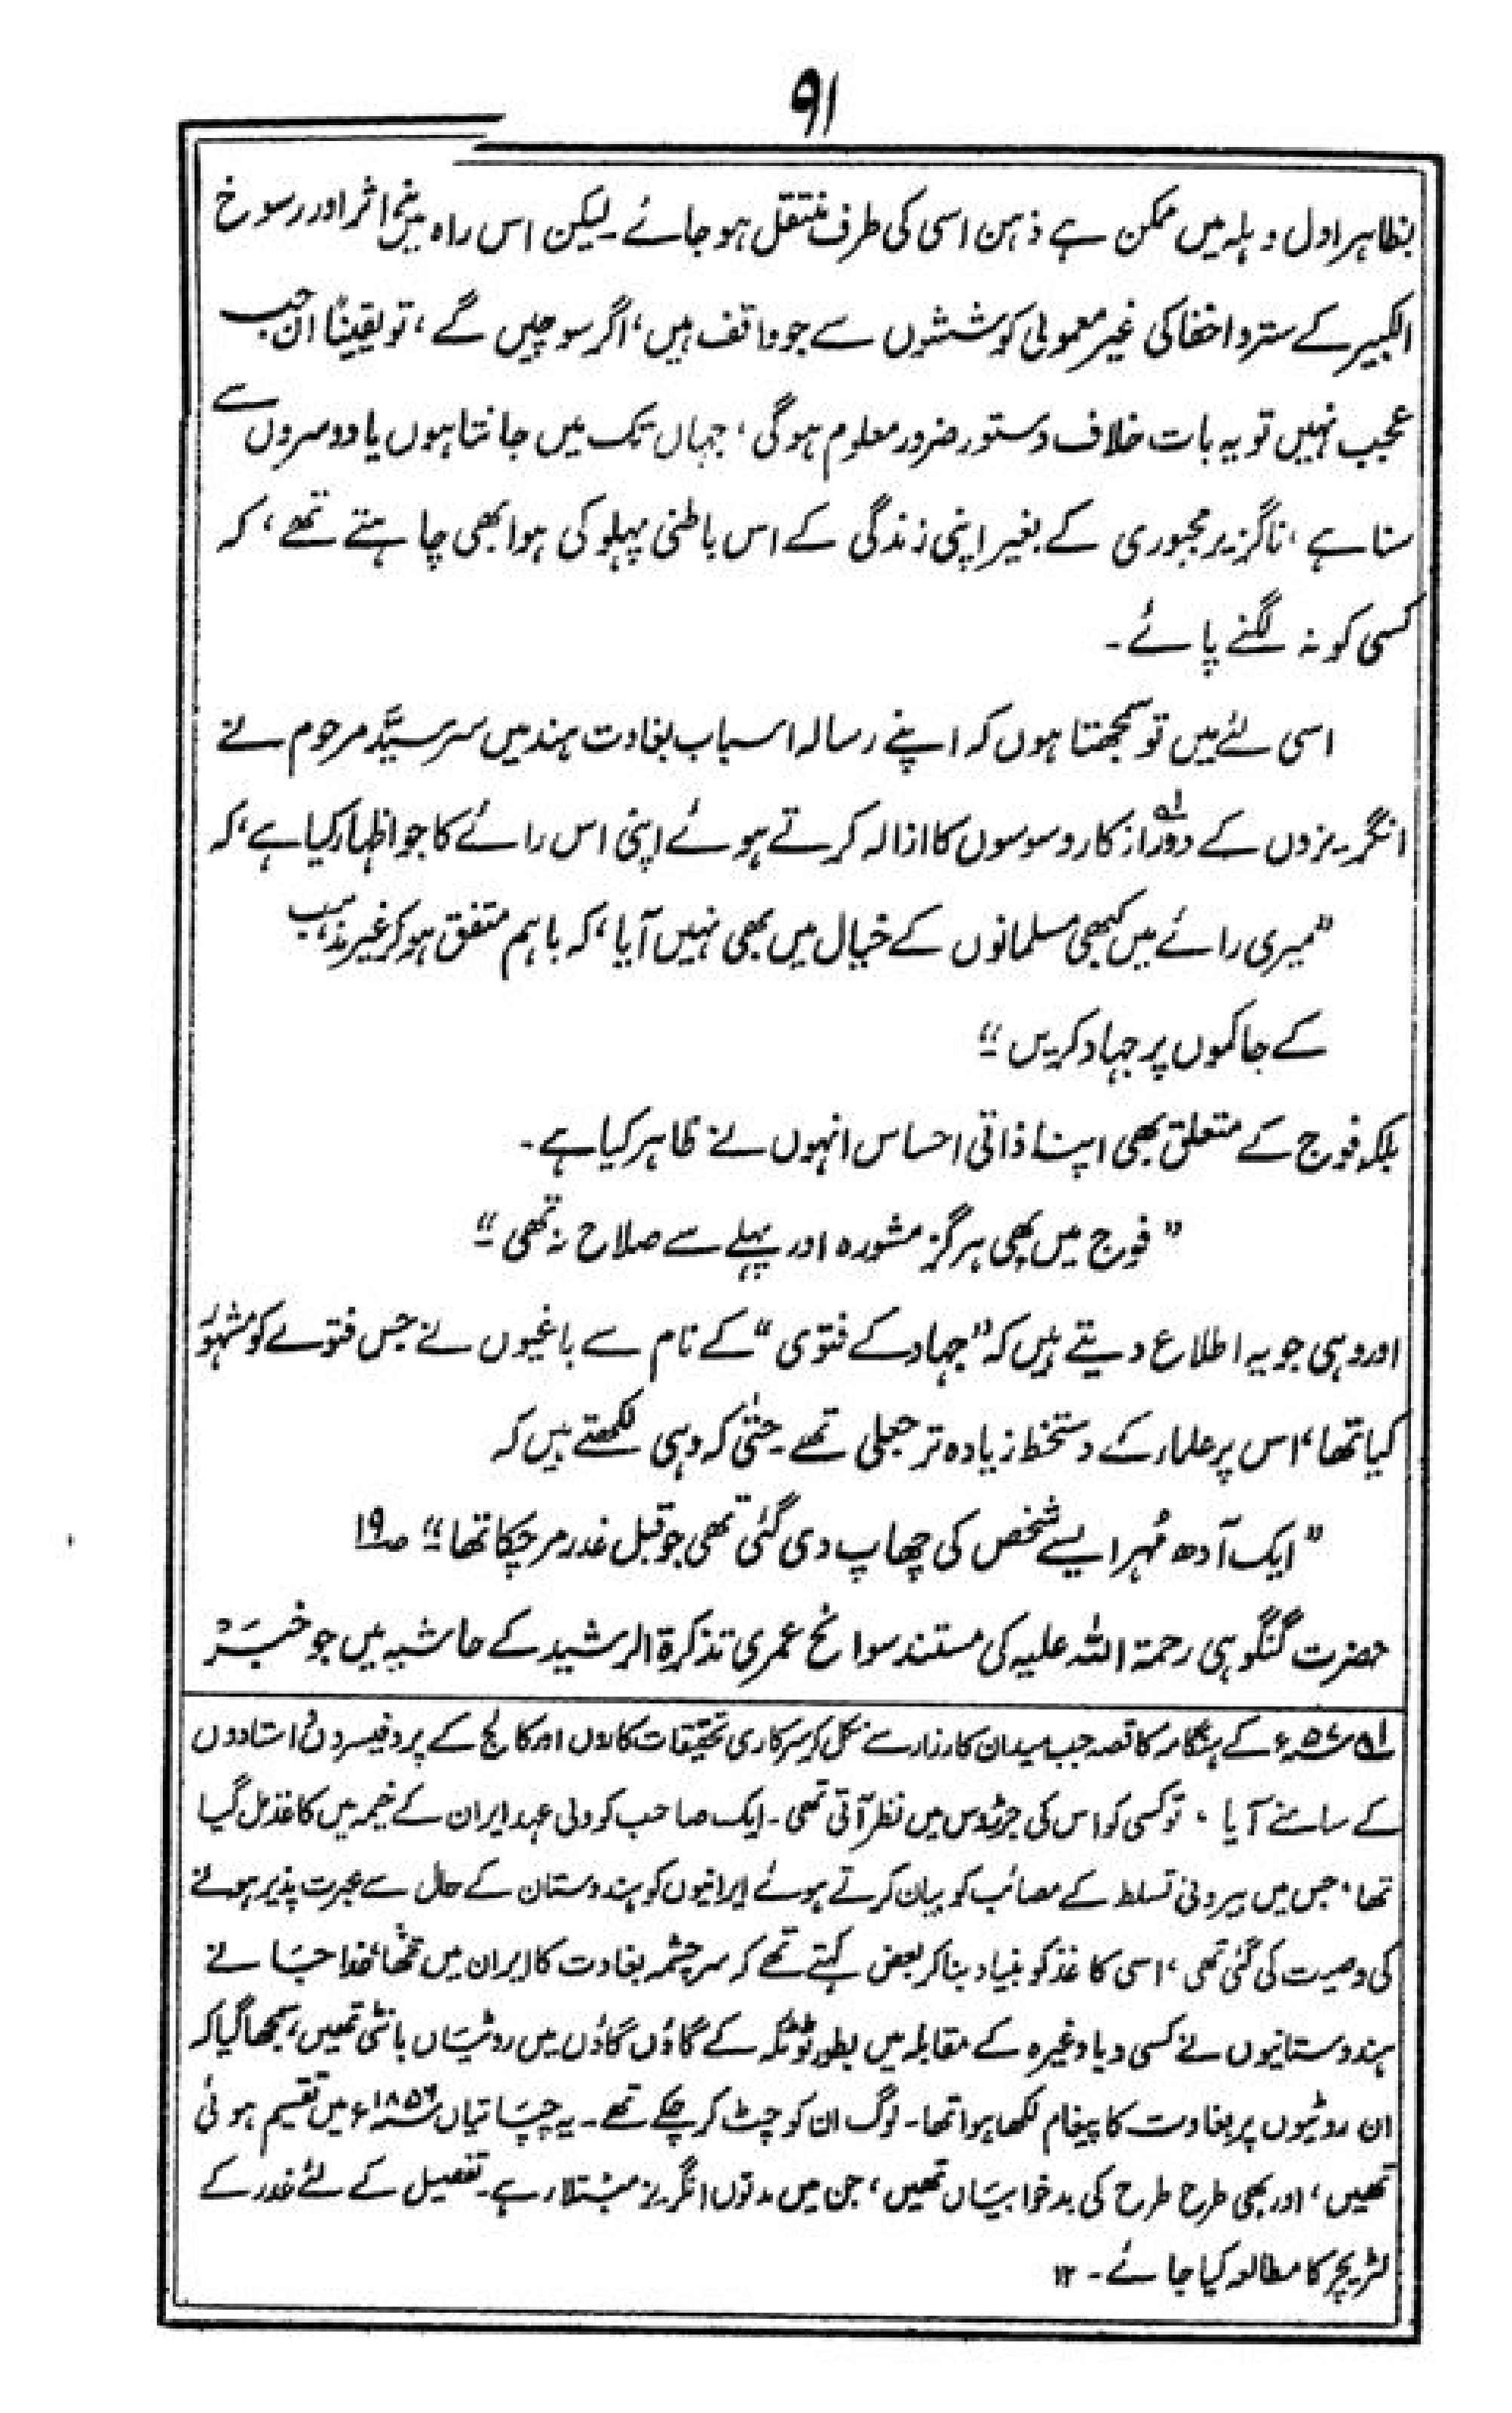 ۹۱
بظاہر اول وہلہ میں ممکن ہے ذہن اسی کی طرف منتقل ہو جائے۔ لیکن اس راہ میں اثر اور رسوخ
الکبیر کے ستر و اخفا کی غیر معمولی کوششوں سے جو واقف ہیں، اگر سوچیں گے، تو یقیناً ان
عجیب نہیں تو یہ بات خلاف دستور ضرور معلوم ہوگی، جہاں تک میں جانتا ہوں یا دوسروں سے
سنا ہے، ناگزیر مجبوری کے بغیر اپنی زندگی کے اس باطنی پہلو کی ہوا بھی چاہتے تھے، کہ
کسی کو نہ لگنے پائے۔
اسی لئے میں تو سمجھتا ہوں کہ اپنے رسالہ اسباب بغاوت ہند میں سرسیّد مرحوم نے
انگریزوں کے دور از کار وسوسوں کا ازالہ کرتے ہوئے اپنی اس رائے کا جو اظہار کیا ہے، کہ
”میری رائے میں کبھی مسلمانوں کے خیال میں بھی نہیں آیا، کہ باہم متفق ہو کر غیر مذہب
کے حاکموں پر جہاد کریں“
بلکہ فوج کے متعلق بھی اپنا ذاتی احساس انہوں نے ظاہر کیا ہے۔
”فوج میں بھی ہرگز مشورہ اور پہلے سے صلاح نہ تھی“
اور وہی جو یہ اطلاع دیتے ہیں کہ ”جہاد کے فتوی“ کے نام سے باغیوں نے جس فتوے کو مشہور
کیا تھا، اس پر علماء کے دستخط زیادہ تر جعلی تھے۔ حتیٰ کہ وہی لکھتے ہیں کہ
”ایک آدھ مُہر ایسے شخص کی چھاپ دی گئی تھی جو قبل غدر مر چکا تھا“ صـ۱۹
حضرت گنگوہی رحمۃ اللہ علیہ کی مستند سوانح عمری تذکرۃ الرشید کے حاشیہ میں جو خبر
۵۷ء کے ہنگامہ کا قصہ جب میدان کارزار سے نکل کر سرکاری تحقیقات کاروں اور کالج کے پروفیسروں، استادوں
کے سامنے آیا، تو کسی کو اس کی جڑ روس میں نظر آتی تھی۔ ایک صاحب کو ولی عہد ایران کے خیمہ میں کاغذ مل گیا
تھا، جس میں بیرونی تسلط کے مصائب کو بیان کرتے ہوئے ایرانیوں کو ہندوستان کے حال سے عبرت پذیر ہونے
کی وصیت کی گئی تھی، اسی کاغذ کو بنیاد بنا کر بعض کہتے تھے کہ سرچشمہ بغاوت کا ایران میں تھا، خدا جانے
ہندوستانیوں نے کسی وبا وغیرہ کے مقابلہ میں بطور ٹوٹکہ کے گاؤں گاؤں میں روٹیاں بانٹی تھیں، سمجھا گیا کہ
ان روٹیوں پر بغاوت کا پیغام لکھا ہوا تھا۔ لوگ ان کو چٹ کر چکے تھے۔ یہ چپاتیاں ۱۸۵۶ء میں تقسیم ہوئی
تھیں، اور بھی طرح طرح کی بدخوابیاں تھیں، جن میں مدتوں انگریز مبتلا رہے۔ تفصیل کے لئے غدر کے
لٹریچر کا مطالعہ کیا جائے۔ ۱۲